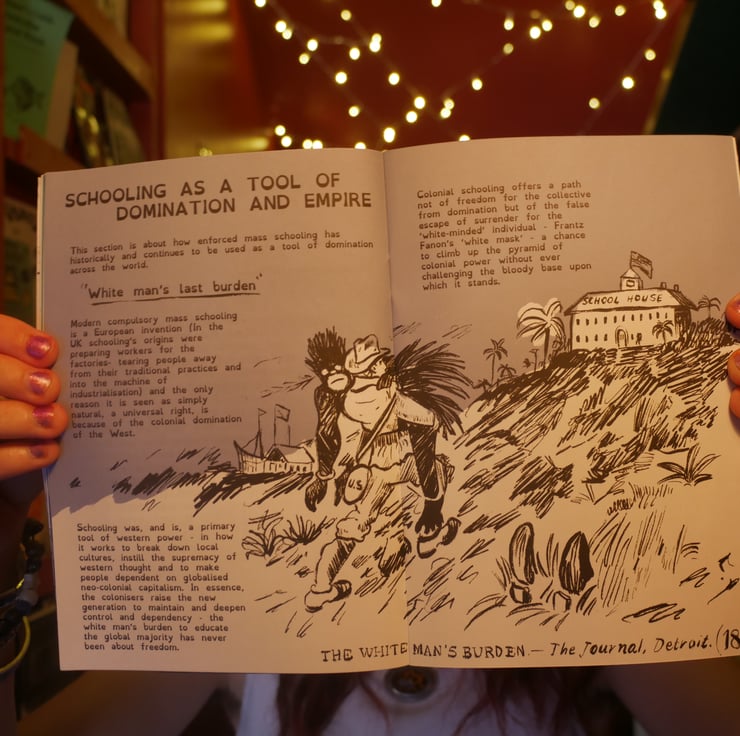 SCHOOLING AS A TOOL OF
DOMINATION AND EMPIRE
This section is about how enforced mass schooling has
historically and continues to be used as a tool of domination
across the world.
"White man's last burden"
Modern compulsory mass schooling
is a European invention (In the
UK schooling's origins were
preparing workers for the
factories- tearing people away
from their traditional practices and
into the machine of
industrialisation) and the only
reason it is seen as simply
natural, a universal right, is
because of the colonial domination
of the West.
Schooling was, and is, a primary
tool of western power - in how
it works to break down local
cultures, instill the supremacy of
western thought and to make
people dependent on globalised
neo-colonial capitalism. In essence,
the colonisers raise the new
generation to maintain and deepen
control and dependency - the
white man's burden to educate
the global majority has never
been about freedom.
Colonial schooling offers a path
not of freedom for the collective
from domination but of the false
escape of surrender for the
'white-minded' individual - Frantz
Fanon's 'white mask' - a chance
to climb up the pyramid of
colonial power without ever
challenging the bloody base upon
which it stands.
SCHOOL HOUSE
U.S
THE WHITE MAN'S BURDEN.— The Journal, Detroit. (18